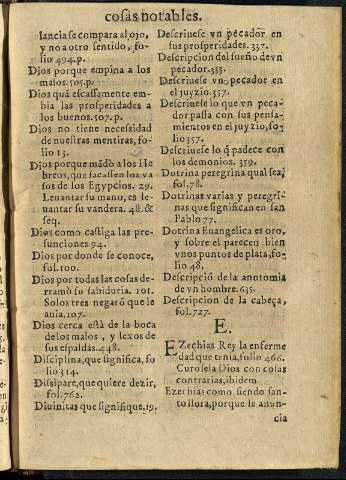 cosas notables.
lancia se compara al ojo,
y no a otro sentido, fo-
lio 494.p.
Dios porque empina a los
malos.505.p.
Dios quã escassamente em-
bia las prosperidades a
los buenos.507.p.
Dios no tiene necessidad
de nuestras mentiras, fo-
lio 13.
Dios porque mãdò a los He
breos, que sacassen los va
sos de los Egypcios. 29.
Leuantar su mano, es le-
uantar su vandera. 48. &
seq.
Dios como castiga las pre-
sunciones 94.
Dios por donde se conoce,
fol. 100.
Dios por todas las cosas de-
rramò su sabiduria. 101.
Solos tres negarõ que le
auia.107.
Dios cerca està de la boca
de los malos, y lexos de
sus espaldas.448.
Disciplina, que significa, fo
lio 314.
Dissipare, que quiere dezir,
fol.762.
Diuinitas que signifique.19.
Descriuese vn pecador en
sus prosperidades. 337.
Descripcion del sueño de vn
pecador.333.
Descriuese vn pecador en
el juyzio.357.
Descriuese lo que vn peca-
dor passa con sus pensa-
mientos en el juyzio, fo-
lio 357.
Descriuese lo q̃ padece con
los demonios. 359.
Dotrina peregrina qual sea,
fol.78.
Dotrinas varias y peregri-
nas que significan en san
Pablo 77.
Dotrina Euangelica es oro,
y sobre el parecen bien
vnos puntos de plata, fo-
lio 48.
Descripciõ de la anotomia
de vn hombre. 635.
Descripcion de la cabeça,
fol.727.
E.
EZechias Rey la enferme
dad que tenia, folio 466.
Curosela Dios con cosas
contrarias, ibidem
Ezechias como siendo san-
to llora, porque le anun-
cia